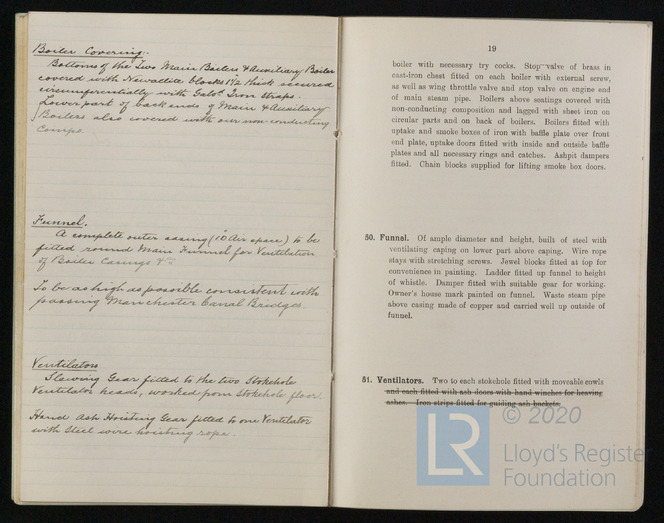 Boiler Covering.
Bottoms of the Two Main Boilers & Auxiliary Boiler
covered with Newallite blocks 1½ thick secured
circumferentially with Galvd. Iron Straps.
Lower part of back ends of Main & Auxiliary
Boilers also covered with our non-conducting
Compo.
Funnel.
A complete outer casing (10" Air space) to be
fitted round Main Funnel for Ventilation
of Boiler Casings &c
To be as high as possible consistent with
passing Manchester Canal Bridges.
Ventilators
Slewing Gear fitted to the two Stokehole
Ventilator heads, worked from Stokehole floor.
Hand Ash Hoisting Gear fitted to one Ventilator
with Steel wire hoisting rope.
19
boiler with necessary try cocks. Stop valve of brass in
cast-iron chest fitted on each boiler with external screw,
as well as wing throttle valve and stop valve on engine end
of main steam pipe. Boilers above seatings covered with
non-conducting composition and lagged with sheet iron on
circular parts and on back of boilers. Boilers fitted with
uptake and smoke boxes of iron with baffle plate over front
end plate, uptake doors fitted with inside and outside baffle
plates and all necessary rings and catches. Ashpit dampers
fitted. Chain blocks supplied for lifting smoke box doors.
50. Funnel. Of ample diameter and height, built of steel with
ventilating caping on lower part above caping. Wire rope
stays with stretching screws. Jewel blocks fitted at top for
convenience in painting. Ladder fitted up funnel to height
of whistle. Damper fitted with suitable gear for working.
Owner's house mark painted on funnel. Waste steam pipe
above casing made of copper and carried well up outside of
funnel.
51. Ventilators. Two to each stokehole fitted with moveable cowls
and each fitted with ash doors with hand winches for heaving
ashes. Iron strips fitted for guiding ash buckets.
© 2020
LR
Lloyd's Register
Foundation